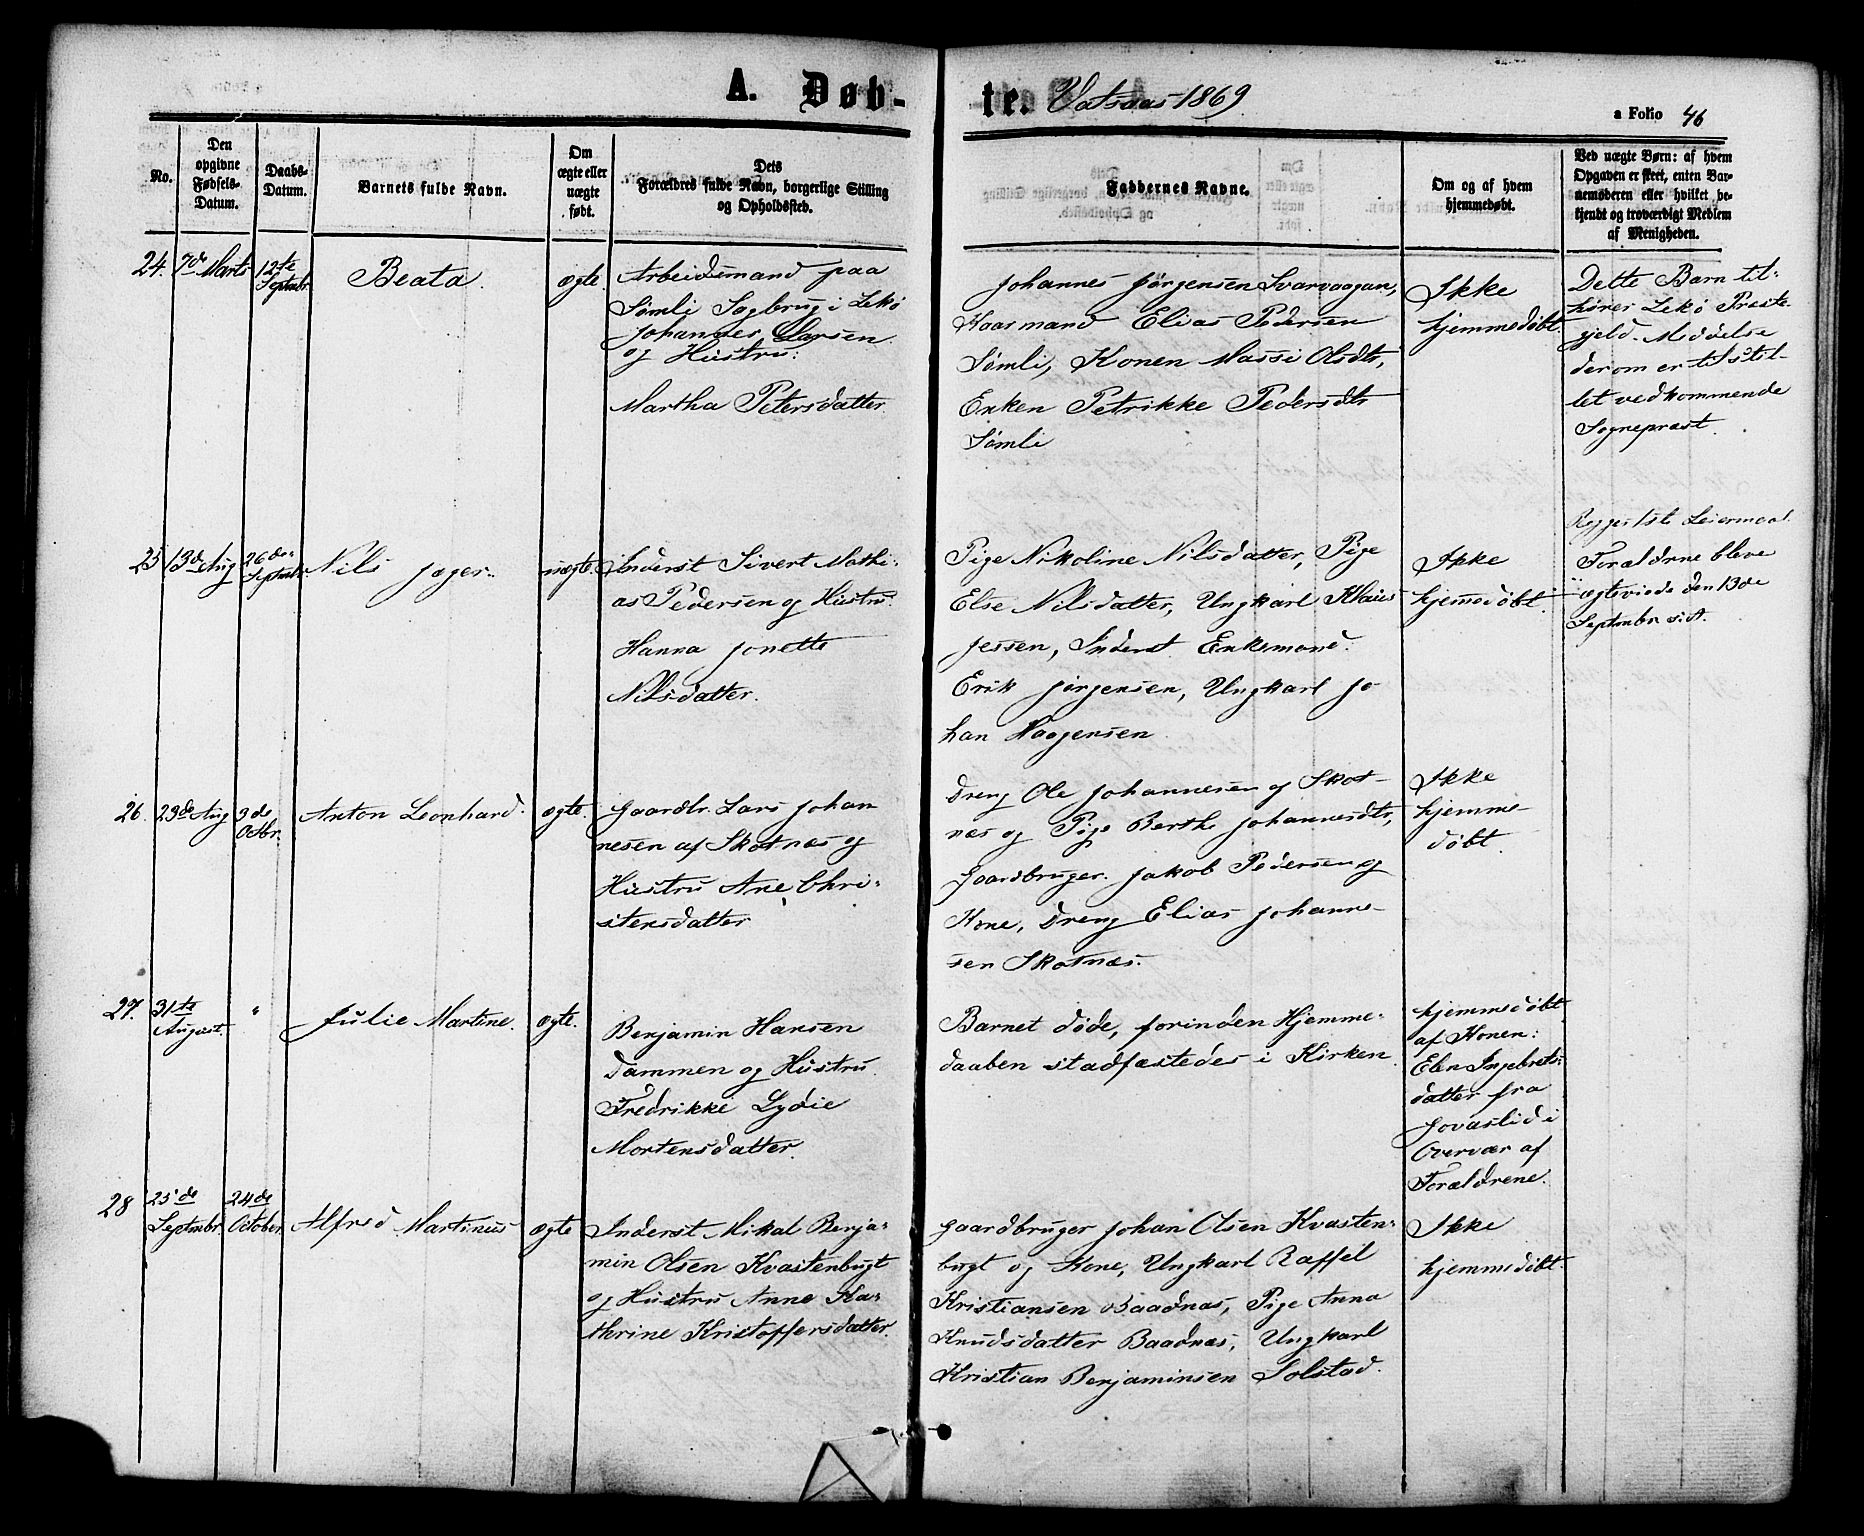 A. Døb-
te. Vatsaas 1869.
a Folio 46
No.
Den
opgivne
Fødsels-
Datum.
Daabs-
Datum.
Barnets fulde Navn.
Om
ægte eller
uægte
født.
Dets
Forældres fulde Navn, borgerlige Stilling
og Opholdssted.
Faddernes Navne.
Om og af hvem
hjemmedøbt.
Ved uægte Børn: af hvem
Opgaven er skeet, enten Bar-
nemoderen eller hvilket be-
kjendt og troværdigt Medlem
af Menigheden.
24. 7de Marts
12te
Septmbr
Beata.
ægte.
Arbeidsmand paa
Sømli Sagbrug i Lekø
Johannes Larsen
og Hustru:
Martha Petersdatter
Johannes Jørgensen Svarvaagan,
Kaarmand Elias Pedersen
Sømli, Konen Massi Olsdtr,
Enken Petrikke Pedersdtr
Sømli
Ikke
hjemmedøbt.
Dette Barn til-
hører Lekø Præste-
gjeld. Meddelse
derom er tilstil-
let vedkommende
Sognepræst.
25 13de Aug
26de
Septmbr
Nils Jæger.
uægte.
Inderst Sivert Mathi-
as Pedersen og Hustru
Hanna Jonette
Nilsdatter.
Pige Nikoline Nilsdatter, Pige
Else Nilsdatter, Ungkarl Klaus
Jessen, Inderst Enkemand
Erik Jørgensen, Ungkarl Jo
han Haagensen
Ikke
hjemmedøbt.
Begges 1ste Leiermaal.
Forældrne bleve
ægteviede den 13de
Septmbr sidst.
26. 23de Aug
3de
Octbr.
Anton Leonhard.
ægte.
Gaardbr. Lars Johan
nesen af Skotnæs og
Hustru Ane Chri-
stensdatter
Dreng Ole Johannesen af Skot-
næs og Pige Berthe Johannesdtr,
Gaardbruger Jakob Pedersen og
Kone, Dreng Elias Johanne-
sen Skotnæs.
Ikke
hjemme-
døbt.
27. 31te
August.
"
Julie Martine.
ægte.
Benjamin Hansen
Dammen og Hustru
Fredrikke Lydie
Mortensdatter.
Barnet døde, forinden Hjemme-
daaben stadfæstedes i Kirken
hjemmedøbt
af Konen:
Elen Ingebrets-
datter fra
Jovaslid i
Overvær af
Forældrene.
28 25de
Septmbr
24de
October.
Alfred Martinus
ægte
Inderst Mikal Benja-
min Olsen Kvastenbugt
og Hustru Anne Ka-
thrine Kristoffersdatter.
Gaardbruger Johan Olsen Kvasten-
bugt og Kone, Ungkarl Raffel
Kristiansen Baadnæs, Pige Anna
Knudsdatter Baadnæs, Ungkarl
Kristian Benjaminsen Solstad.
Ikke
hjemmedøbt